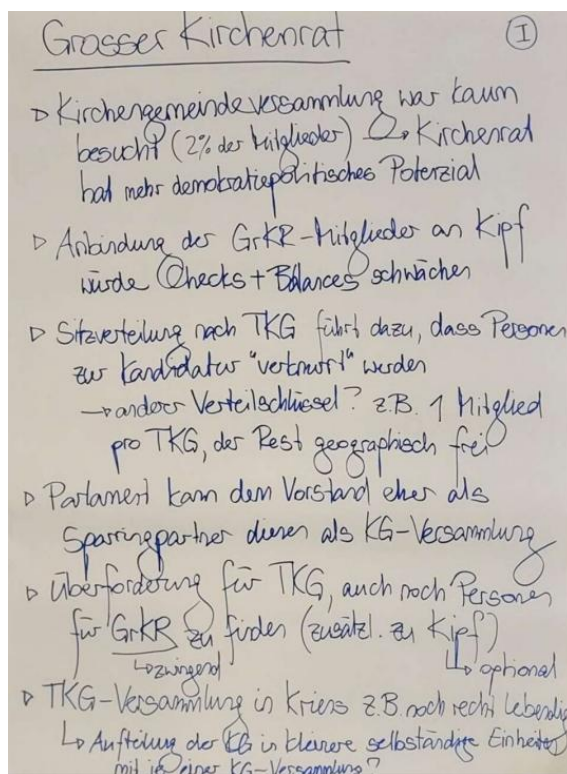 Grosser Kirchenrat
I
▷ Kirchengemeindeversammlung war kaum
besucht (2% der Mitglieder) → Kirchenrat
hat mehr demokratiepolitisches Potenzial
▷ Anbindung der GrKR-Mitglieder an Kipf
würde Checks + Balances schwächen
▷ Sitzverteilung nach TKG führt dazu, dass Personen
zur Kandidatur "verknurrt" werden
→ anderer Verteilschlüssel? z.B. 1 Mitglied
pro TKG, der Rest geographisch frei
▷ Parlament kann dem Vorstand eher als
Sparringpartner dienen als KG-Versammlung
▷ Überforderung für TKG, auch noch Personen
für GrKR zu finden (zusätzl. zu Kipf)
↳ zwingend ↳ optional
▷ TKG-Versammlung in Kriens z.B. noch recht lebendig
↳ Aufteilung der KG in kleinere selbständige Einheiten
mit je einer KG-Versammlung?